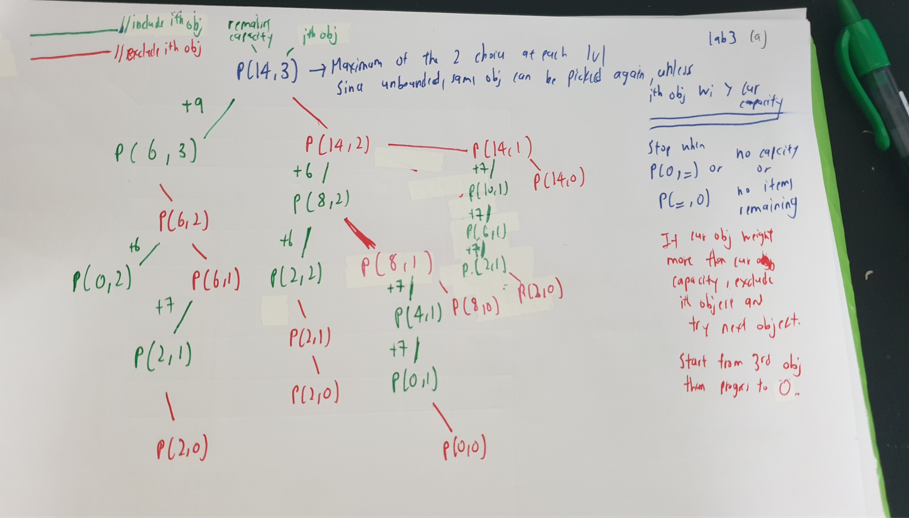 //include ith obj
//exclude ith obj
remains capacity
ith obj
lab3 (a)
P(14,3) → Maximum of the 2 choice at each lvl
Since unbounded, same obj can be picked again, unless
ith obj wi > cur
capacity
+9
P(6,3)
P(14,2)
P(14,1)
+6
+7
P(14,0)
P(8,2)
P(10,1)
P(6,2)
+7
P(6,1)
+6
+6
+7
P(0,2)
P(6,1)
P(2,2)
P(8,1)
P(2,1)
+7
+7
P(8,0)
P(2,0)
P(4,1)
P(2,1)
P(2,1)
+7
P(0,1)
P(2,0)
P(2,0)
P(0,0)
Stop when
P(0,=) or
P(=,0)
no capcity
or
no items
remaining
If cur obj weight
more than cur
capacity, exclude
ith object and
try next object.
Start from 3rd obj
then progres to 0..